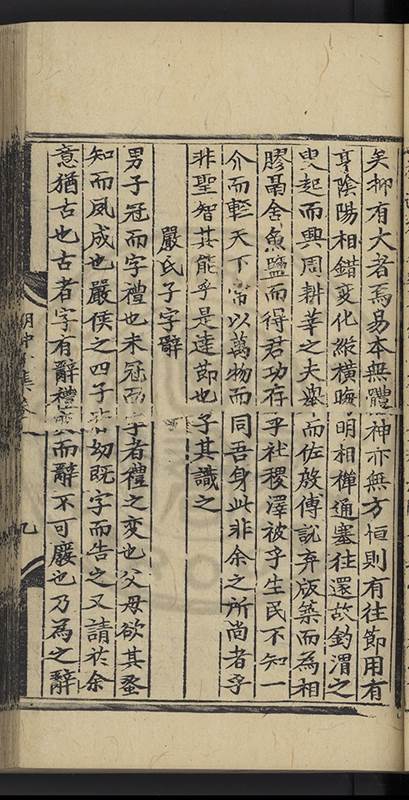 矣抑有大者焉易本無體神亦無方恒則有往節用有
亨陰陽相錯變化縱橫晦明相禪通塞往還故釣渭之
叟起而興周耕莘之夫舉而佐殷傅說弃版築而為相
膠鬲舍魚鹽而得君功存乎社稷澤被乎生民不知一
介而輕天下而以萬物而同吾身此非余之所尚者乎
非聖智其能乎是達節也子其識之
嚴氏子字辭
男子冠而字禮也未冠而字者禮之變也父母欲其蚤
知而夙成也嚴侯之四子皆幼既字而告之又請於余
意猶古也古者字有辭禮而辭不可嚴也乃為之辭
集卷
九